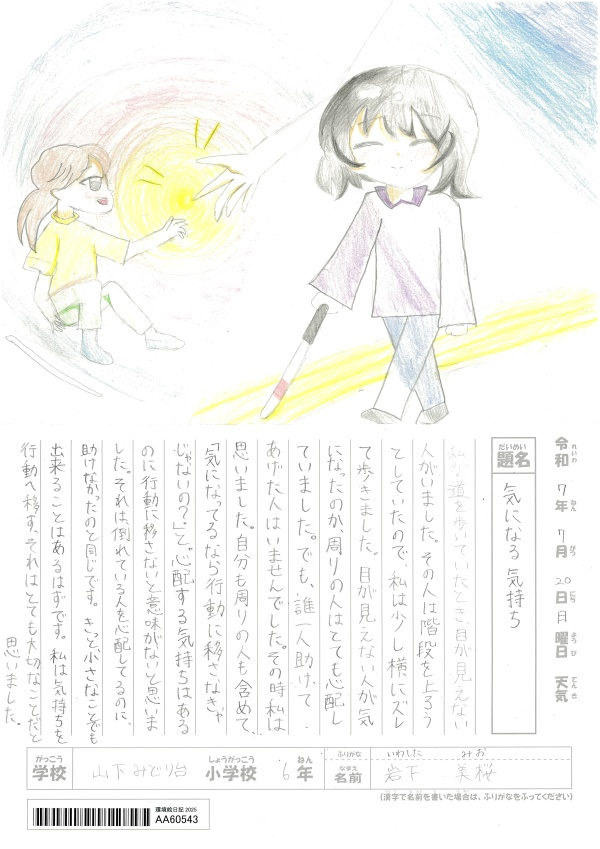 令和7年7月20日日曜日 天気
れいわ ねん がつ にち ようび てんき
だいめい
題名 気になる気持ち
私が道を歩いていたとき、目が見えない
人がいました。その人は階段を上ろう
としていたので、私は少し横にズレ
て歩きました。目が見えない人が気
になったのか、周りの人はとても心配し
ていました。でも、誰一人助けて
あげた人はいませんでした。その時私は
思いました。自分も周りの人も含めて、
「気になってるなら行動に移さなきゃ
じゃないの?」と。心配する気持ちはある
のに行動に移さないと意味がないと思いま
した。それは、倒れている人を心配してるのに、
助けなかったのと同じです。きっと小さなことでも
出来ることはあるはずです。私は気持ちを
行動へ移す、それはとても大切なことだと
思いました。
がっこう しょうがっこう ねん ふりがな いわした みお
学校 山下みどり台 小学校 6年 なまえ 名前 岩下 美桜
(漢字で名前を書いた場合は、ふりがなをふってください)
環境絵日記 2025
AA60543